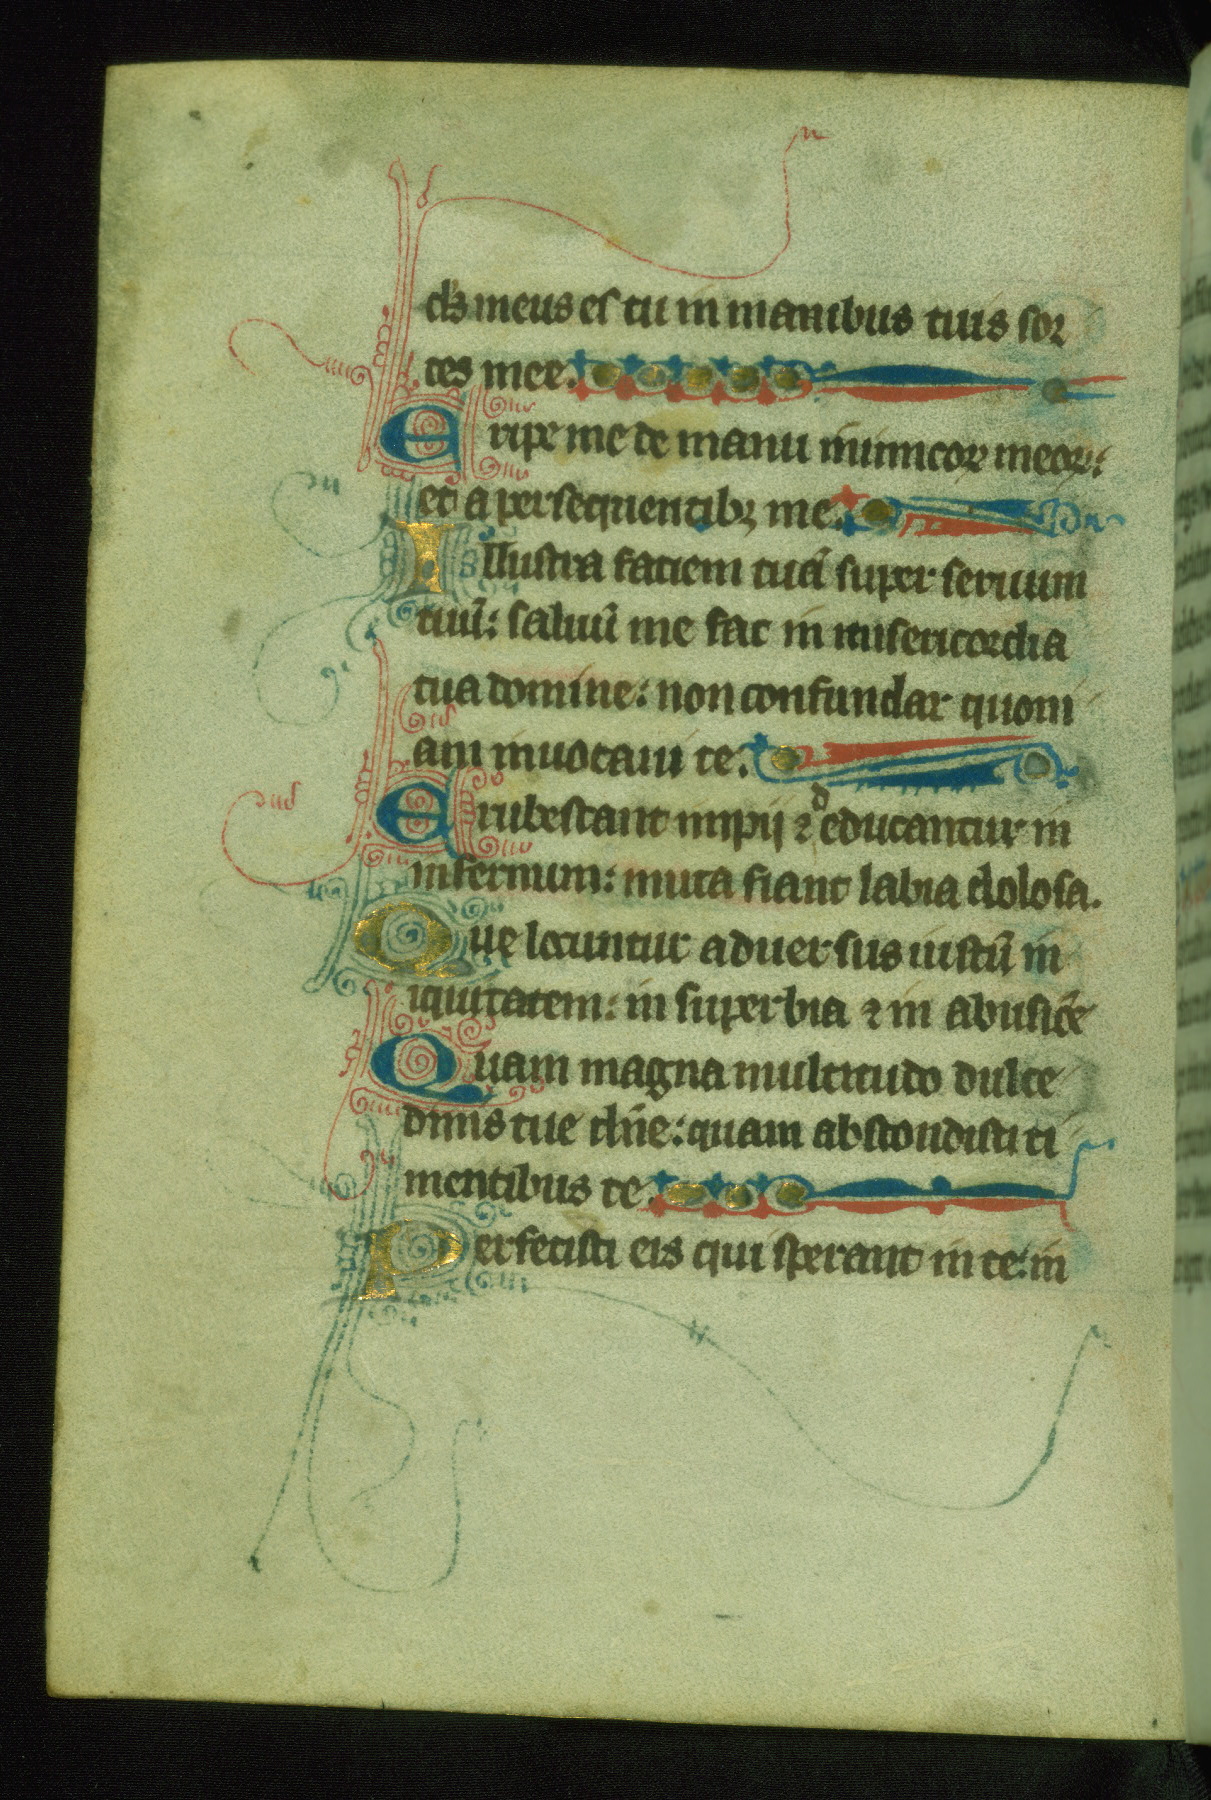 ds meus es tu in manibus tuis sor
tes mee.
Eripe me de manu inimicoꝝ meoꝝ:
et a persequentibꝫ me.
Illustra faciem tuā super seruum
tuū: saluū me fac in misericordia
tua domine: non confundar quoni
am inuocaui te.
Erubescant impij ⁊ deducantur in
infernum: muta fiant labia dolosa.
Que locuntur aduersus iustū in
iquitatem: in superbia ⁊ in abusiōe
Quam magna multitudo dulce
dinis tue dn̄e: quam abscondisti ti
mentibus te.
Perfecisti eis qui sperant in te: in